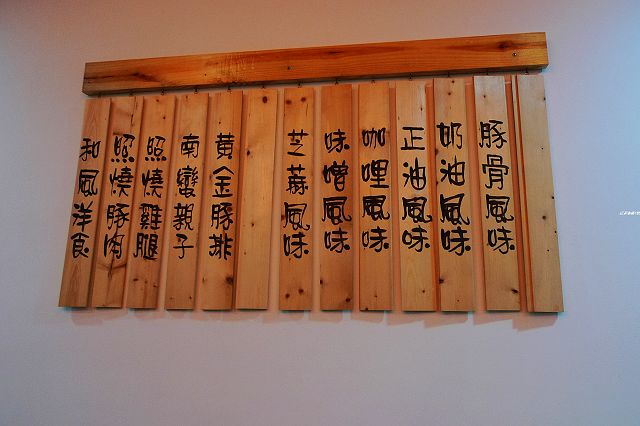 豚骨風味
奶油風味
正油風味
咖哩風味
味噌風味
芝蔴風味
黄金豚排
南蠻親子
照燒雞腿
照燒豚肉
和風洋食